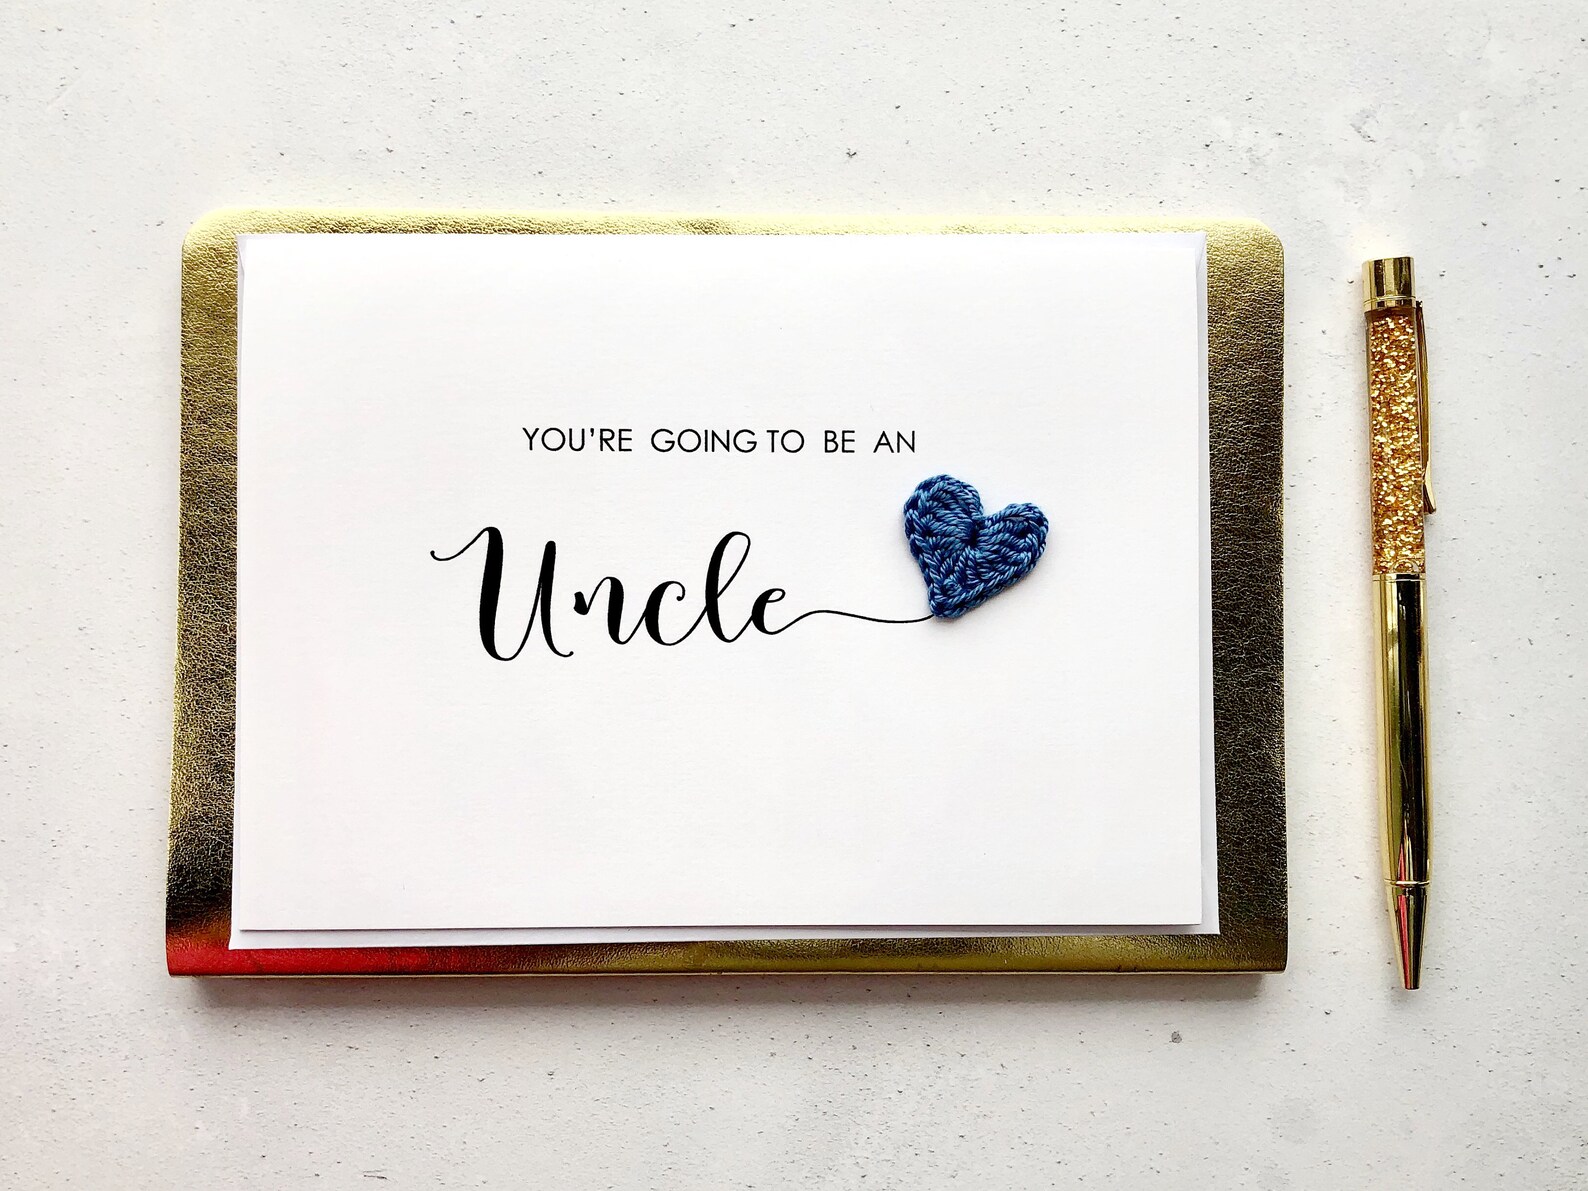 YOU'RE GOING TO BE AN
Uncle